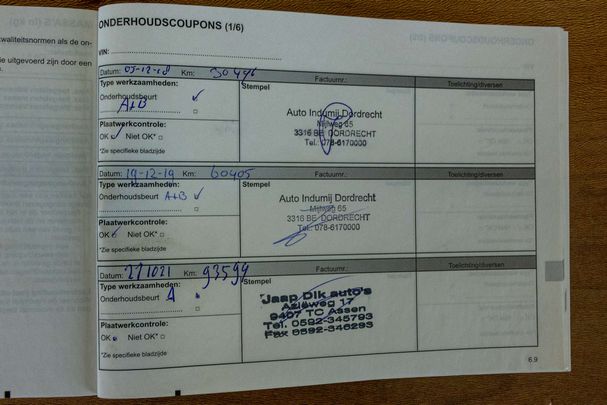 ONDERHOUDSCOUPONS (1/6)
VIN:
Datum: 05-12-18 Km: 30496 Factuurnr.: Toelichting/diversen
Type werkzaamheden: Stempel
Onderhoudsbeurt
A+B
Auto Indumij Dordrecht
Mijlweg 65
3316 BE DORDRECHT
Tel.: 078-6170000
Plaatwerkcontrole:
OK Niet OK*
*Zie specifieke bladzijde
Datum: 19-12-19 Km: 60405 Factuurnr.: Toelichting/diversen
Type werkzaamheden: Stempel
Onderhoudsbeurt A+B
Auto Indumij Dordrecht
Mijlweg 65
3316 BE DORDRECHT
Tel.: 078-6170000
Plaatwerkcontrole:
OK Niet OK*
*Zie specifieke bladzijde
Datum: 271021 Km: 93594 Factuurnr.: Toelichting/diversen
Type werkzaamheden: Stempel
Onderhoudsbeurt A
Jaap Dik auto's
Aziëweg 17
9407 TC Assen
Tel. 0592-345793
Fax 0592-346293
Plaatwerkcontrole:
OK Niet OK*
*Zie specifieke bladzijde
6.9
kwaliteitsnormen als de on-
ie uitgevoerd zijn door een